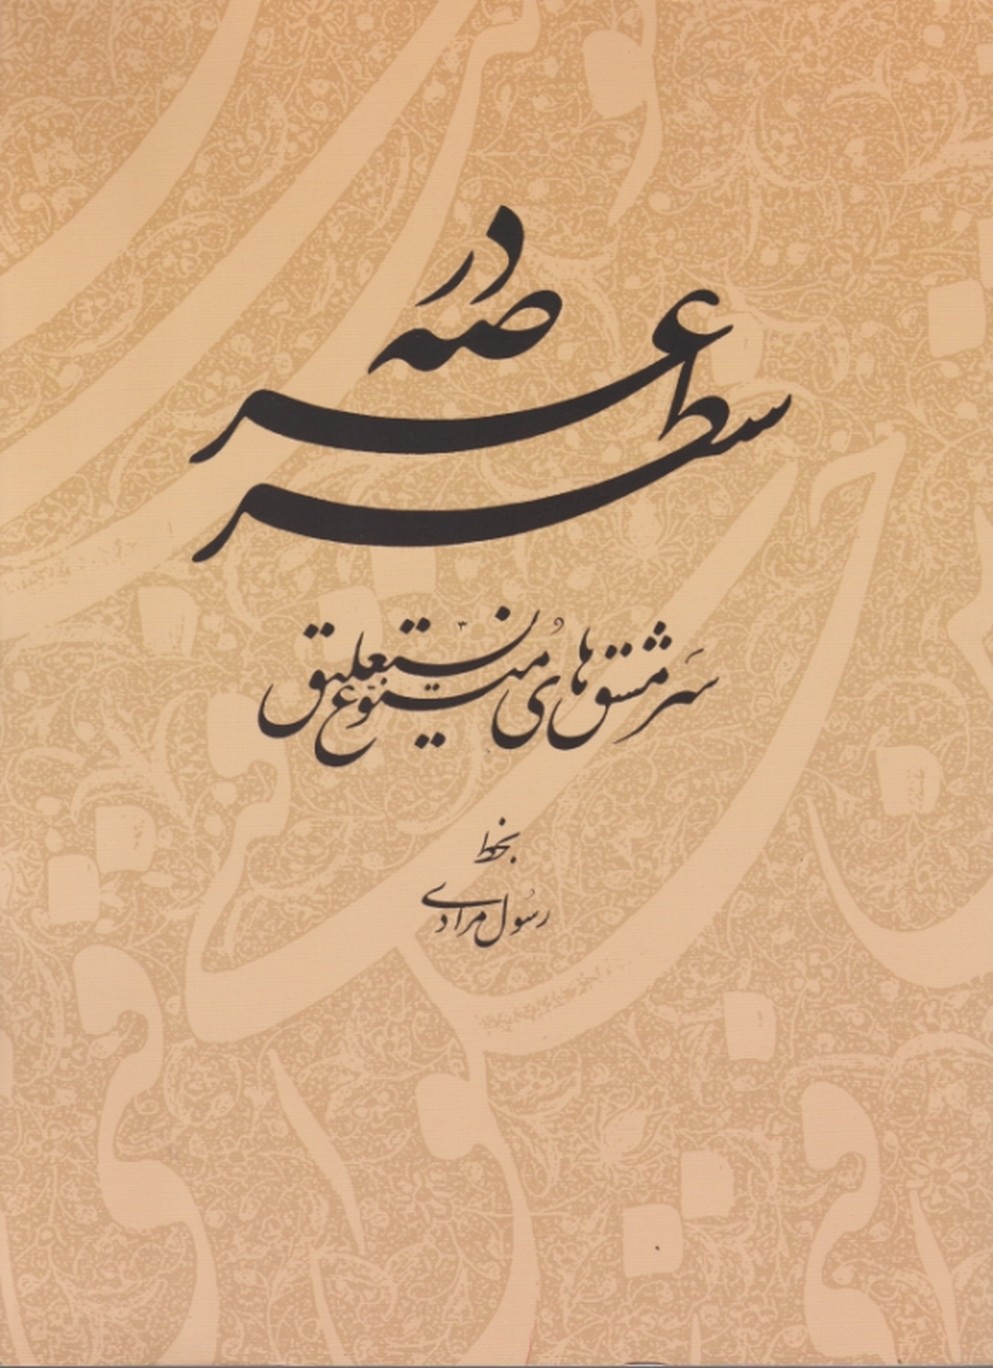 در عرصه سطر
سرمشق های متنوع نستعلیق
بخط
رسول مرادی